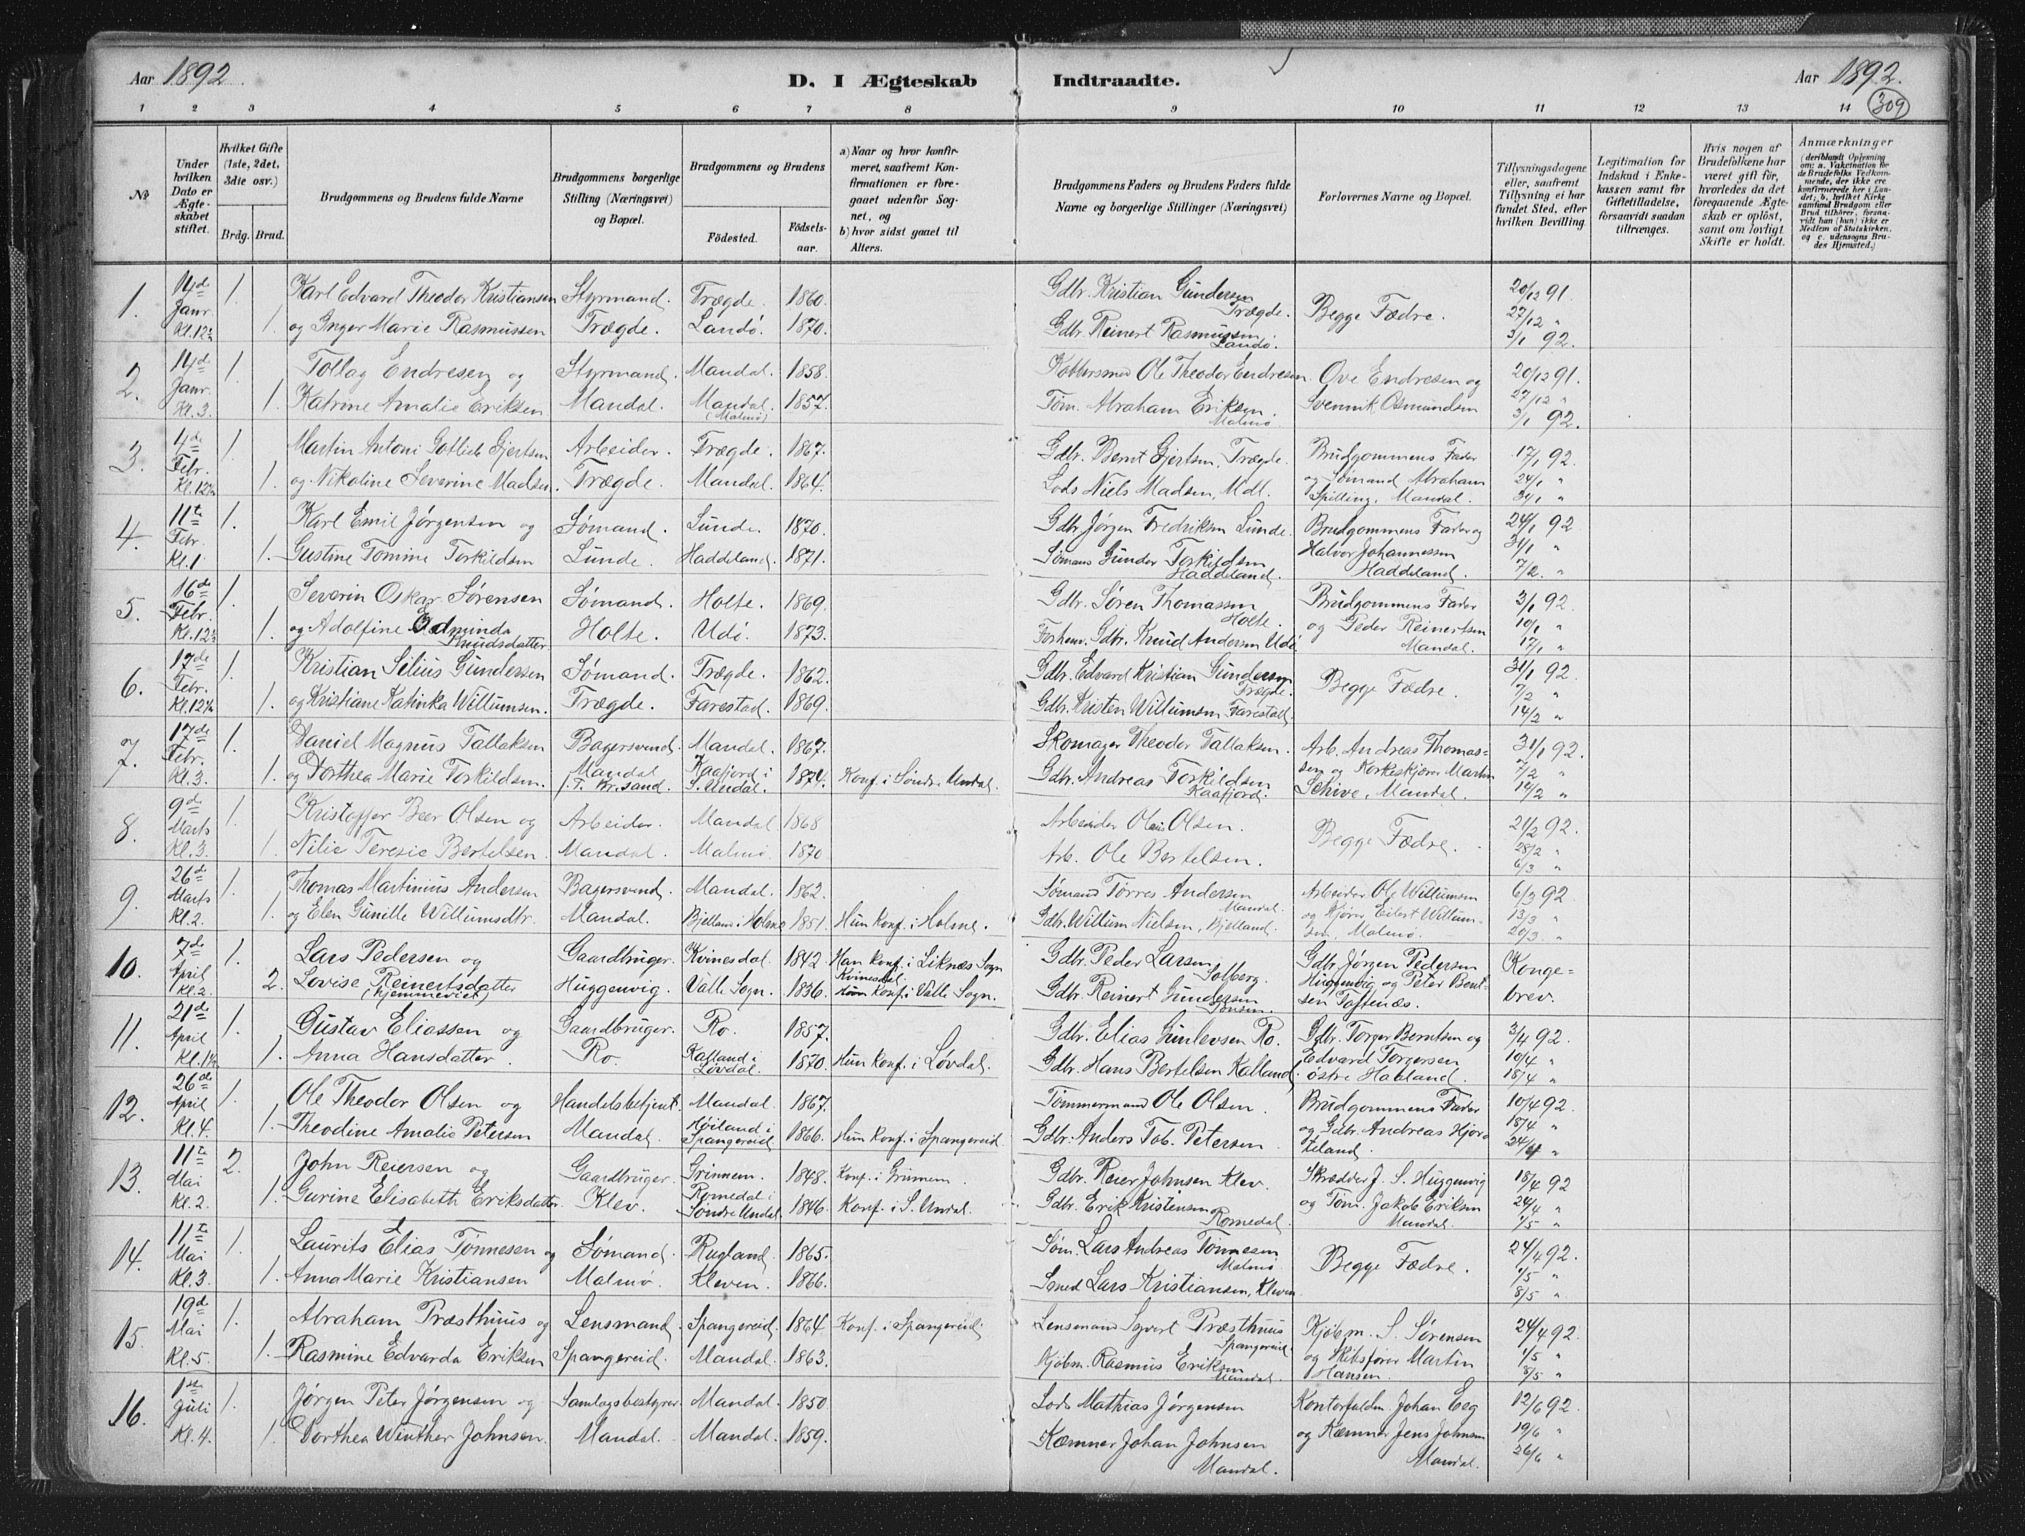 Aar 1892.
D. I Ægteskab Indtraadte.
Aar 1892.
309
1 2 3 4 5 6 7 8 9 10 11 12 13 14
№
Under hvilken Dato er Ægteskabet stiftet.
Hvilket Gifte (1ste, 2det, 3die osv.)
Brdg. Brud.
Brudgommens og Brudens fulde Navne
Brudgommens borgerlige Stilling (Næringsvei) og Bopæl.
Brudgommens og Brudens
Fødested.
Fødselsaar.
a) Naar og hvor konfirmeret, saafremt Konfirmationen er foregaaet udenfor Sognet, og
b) hvor sidst gaaet til Alters.
Brudgommens Faders og Brudens Faders fulde Navne og borgerlige Stillinger (Næringsvei)
Forlovernes Navne og Bopæl.
Tillysningsdagene eller, saafremt Tillysning ei har fundet Sted, efter hvilken Bevilling
Legitimation for Indskud i Enkekassen samt for Giftetilladelse, forsaavidt saadan tiltrænges.
Hvis nogen af Brudefolkene har været gift før, hvorledes da det foregaaende Ægteskab er opløst, samt om lovligt Skifte er holdt.
Anmærkninger
(deriblandt Oplysning om: a. Vakcination for de Brudefolks Vedkommende, der ikke ere konfirmerede her i Landet; b. hvilket Kirkesamfund Brudgom eller Brud tilhører, forsaavidt han (hun) ikke er Medlem af Statskirken, og c. udensogns Brudes Hjemsted.)
1. 14de Janr. Kl. 12½ 1. Karl Edvard Theodor Kristiansen Styrmand. Trægde. 1860. Gdbr. Kristian Gundersen Trægde. Begge Fædre. 20/12 91.
1. og Inger Marie Rasmussen Trægde. Landø. 1870. Gdbr. Reinert Rasmussen Landø. 27/12 " 3/1 92.
2. 14de Janr. Kl. 3. 1. Tollag Endresen og Styrmand. Mandal. 1858. Kobbersmed Ole Theodor Endresen Ove Endresen og 20/12 91.
1. Katrine Amalie Eriksen Mandal. Mandal (Malmø) 1857. Tøm. Abraham Eriksen. Malmø Svennik Osmundsen 27/12 " 3/1 92.
3. 4de Febr. Kl. 12½ 1. Martin Antoni Gotlieb Gjertsen Arbeider. Trægde. 1867. Gdbr. Bernt Gjertsen, Trægde. Brudgommens Fader 17/1 92.
1. og Nikoline Severine Madsen. Trægde. Mandal. 1864. Lods Niels Madsen, Mdl. og Sømand Abraham Spilling, Mandal. 24/1 " 31/1 "
4. 11te Febr. Kl. 1 1. Karl Emil Jørgensen og Sømand. Lunde. 1870. Gdbr. Jørgen Fredriksen Lunde. Brudgommens Fader og 24/1 92
1. Gustine Tomine Torkildsen Lunde. Haddeland. 1871. Sømand Gunder Torkildsen Haddeland. Halvor Johannessen Haddeland. 31/1 " 7/2. "
5. 16de Febr. Kl. 12½ 1. Severin Oskar Sørensen Sømand. Holte. 1869. Gdbr. Søren Thomassen Holte. Brudgommens Fader 3/1 92.
1. og Adolfine Edminda Knudsdatter Holte. Udø. 1873. Forhenv. Gdbr. Knud Andersen Udø og Peder Reinertsen Mandal. 10/1 " 17/1 "
6. 17de Febr. Kl. 12½ 1. Kristian Silius Gundersen Sømand. Trægde. 1862. Gdbr. Edvard Kristian Gundersen Trægde. Begge Fædre. 31/1 92.
1. og Kristiane Katinka Willumsen. Trægde. Farestad. 1869. Gdbr. Kristen Willumsen Farestad. 7/2 " 14/2 "
7. 17de Febr. Kl. 3. 1. Daniel Magnus Tallaksen Bagersvend. Mandal. 1867. Skomager Theodor Tallaksen. Arb. Andreas Thomas- 31/1 92.
1. og Dorthea Marie Torkildsen. Mandal f. T. Kr.sand. Kaafjord i S. Undal. 1874. Konf. i Søndre Undal. Gdbr. Andreas Torkildsen Kaafjord. sen og Korkeskjærer Martin Schive, Mandal. 7/2 " 14/2 "
8. 9de Marts Kl. 3. 1. Kristoffer Beer Olsen og Arbeider. Mandal 1868 Arbeider Olaus Olsen. Begge Fædre. 21/2 92.
1. Nilie Teresie Bertelsen. Mandal. Malmø. 1870 Arb. Ole Bertelsen. 28/2 " 6/3 "
9. 26de Marts Kl. 2. 1. Thomas Martinius Andersen Bagersvend. Mandal. 1862. Sømand Torres Andersen Mandal. Arbeider Ole Willumsen 6/3 92
1. og Elen Gunille Willumsdtr. Mandal. Bjelland i Holme 1851. Hun konf. i Holme. Gdbr. Willum Nielsen, Bjelland. og Kjører Eilert Willumsen, Malmø. 13/3 " 20/3 "
10. 7de April Kl. 2. 1. Lars Pedersen og Gaardbruger. Kvinesdal. 1842. Han konf. i Liknæs Sogn Kvinesdal. Gdbr. Peder Larsen Solberg. Gdbr. Jørgen Pedersen Konge-
2. Lovise Reinertsdatter (hjemmeviet) Huggenvig. Valle Sogn. 1836. Hun konf. i Valle Sogn. Gdbr. Reinert Gundersen Huggenvig og Peter Bentsen Toftenæs. brev.
11. 21de April Kl. 1½ 1. Gustav Eliassen og Gaardbruger. Ro. 1857. Gdbr. Elias Gunlevsen Ro. Gdbr. Torger Berntsen og 3/4 92.
1. Anna Hansdatter. Ro. Kalland i Løvdal. 1870. Hun Konf. i Løvdal. Gdbr. Hans Bertelsen Kalland. Edvard Torgersen østre Haaland. 10/4 " 18/4 "
12. 26de April Kl. 4. 1. Ole Theodor Olsen og Handelsbetjent. Mandal. 1867. Tømmermand Ole Olsen. Brudgommens Fader 10/4 92.
1. Theodine Amalie Petersen Mandal. Høiland i Spangereid. 1866. Hun Konf. i Spangereid. Gdbr. Anders Tob. Petersen. og Gdbr. Andreas Hjorteland. 18/4 " 24/4 "
13. 11te Mai Kl. 2. 2. John Reiersen og Gaardbruger. Grimnem. 1848. Konf. i Grimnem. Gdbr. Reier Johnsen Klev. Skrædder J. S. Huggenvig 18/4 92
1. Gurine Elisabeth Eriksdatter Klev. Romedal i Søndre Undal. 1846. Konf. i S. Undal. Gdbr. Erik Kristensen Romedal. og Tøm. Jakob Eriksen Mandal. 24/4 " 1/5 "
14. 11te Mai Kl. 3. 1. Laurits Elias Tønnesen og Sømand. Rugland. 1865. Søm. Lars Andreas Tønnesen Malmø Begge Fædre. 24/4 92.
1. Anna Marie Kristiansen Malmø. Kleven. 1866. Smed Lars Kristiansen, Kleven. 1/5 " 8/5 "
15. 19de Mai Kl. 5. 1. Abraham Præsthuus og Lensmand. Spangereid. 1864 Konf. i Spangereid. Lensmand Syvert Præsthuus Spangereid. Kjøbm. S. Sørensen 24/4 92.
1. Rasmine Edvarda Eriksen Spangereid. Mandal. 1863. Kjøbm. Rasmus Eriksen Mandal. og Skibsfører Martin Hansen. 1/5 " 8/5 "
16. 1ste Juli Kl. 4. 1. Jørgen Peter Jørgensen og Samlagsbestyrer Mandal. 1850. Lods Mathias Jørgensen Kontorfuldm. Johan Eeg 12/6 92.
1. Dorthea Winther Johnsen. Mandal. Mandal. 1859. Kæmner Johan Johnsen Mandal. og Kæmner Jens Johnsen Mandal. 19/6 " 26/6 "